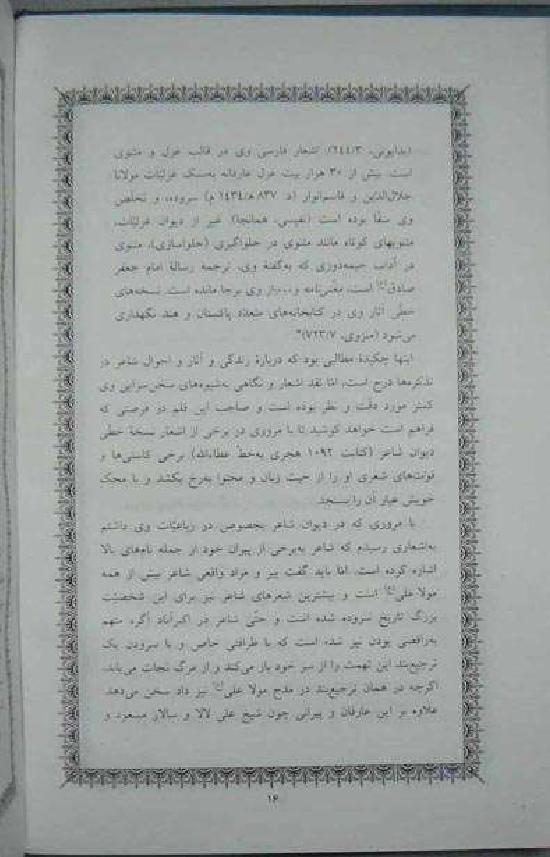 (بدایونی، ۲۴۴/۳). اشعار فارسی وی در قالب غزل و مثنوی
است. بیش از ۳۰ هزار بیت غزل عارفانه به‌سبک غزلیّات مولانا
جلال‌الدین و قاسم‌انوار (د: ۸۳۷ ه/۱۴۳۴ م) سروده، و تخلص
وی سقّا بوده است (نفیسی، همانجا). غیر از دیوان غزلیّات،
مثنویهای کوتاه مانند مثنوی در حلواگری (حلواسازی)، مثنوی
در آداب خیمه‌دوزی که به‌گفتهٔ وی، ترجمه رسالهٔ امام جعفر
صادق(ع) است، و... از وی برجا مانده است. نسخه‌های
خطی آثار وی در کتابخانه‌های متعدّد پاکستان و هند نگهداری
می‌شود (منزوی، ۷۲۳/۷)"
اینها چکیدهٔ مطالبی بود که دربارهٔ زندگی و آثار و احوال شاعر در
تذکره‌ها درج است، امّا نقد اشعار و نگاهی به‌شیوه‌های سخن‌سرایی وی
کمتر مورد دقت و نظر بوده است و صاحب این قلم در فرصتی که
فراهم است خواهد کوشید تا با مروری در برخی از اشعار نسخهٔ خطی
دیوان شاعر (کتابت ۱۰۹۲ هجری به‌خط عطاءالله) برخی کاستی‌ها و
قوت‌های شعری او را از حیث زبان و محتوا به‌رخ بکشد و با محک
خویش عیار آن را بسنجد.
با مروری که در دیوان شاعر بخصوص در رباعیّات وی داشتم
به‌اشعاری رسیدم که شاعر به‌برخی از پیران خود از جمله نام‌های بالا
اشاره کرده است. امّا باید گفت پیر و مراد واقعی شاعر بیش از همه
مولا علی(ع) است و بیشترین شعرهای شاعر نیز برای این شخصیّت
بزرگ تاریخ سروده شده است و حتی شاعر در اکبرآباد آگره متهم
به‌رافضی بودن نیز شده است که با ظرافتی خاص و با سرودن یک
ترجیع‌بند این تهمت را از سر خود باز می‌کند و از مرگ نجات می‌یابد،
اگرچه در همان ترجیع‌بند در مدح مولا علی(ع) نیز داد سخن می‌دهد.
علاوه بر این عارفان و پیرانی چون شیخ علی لالا و سالار مسعود و
۱۶